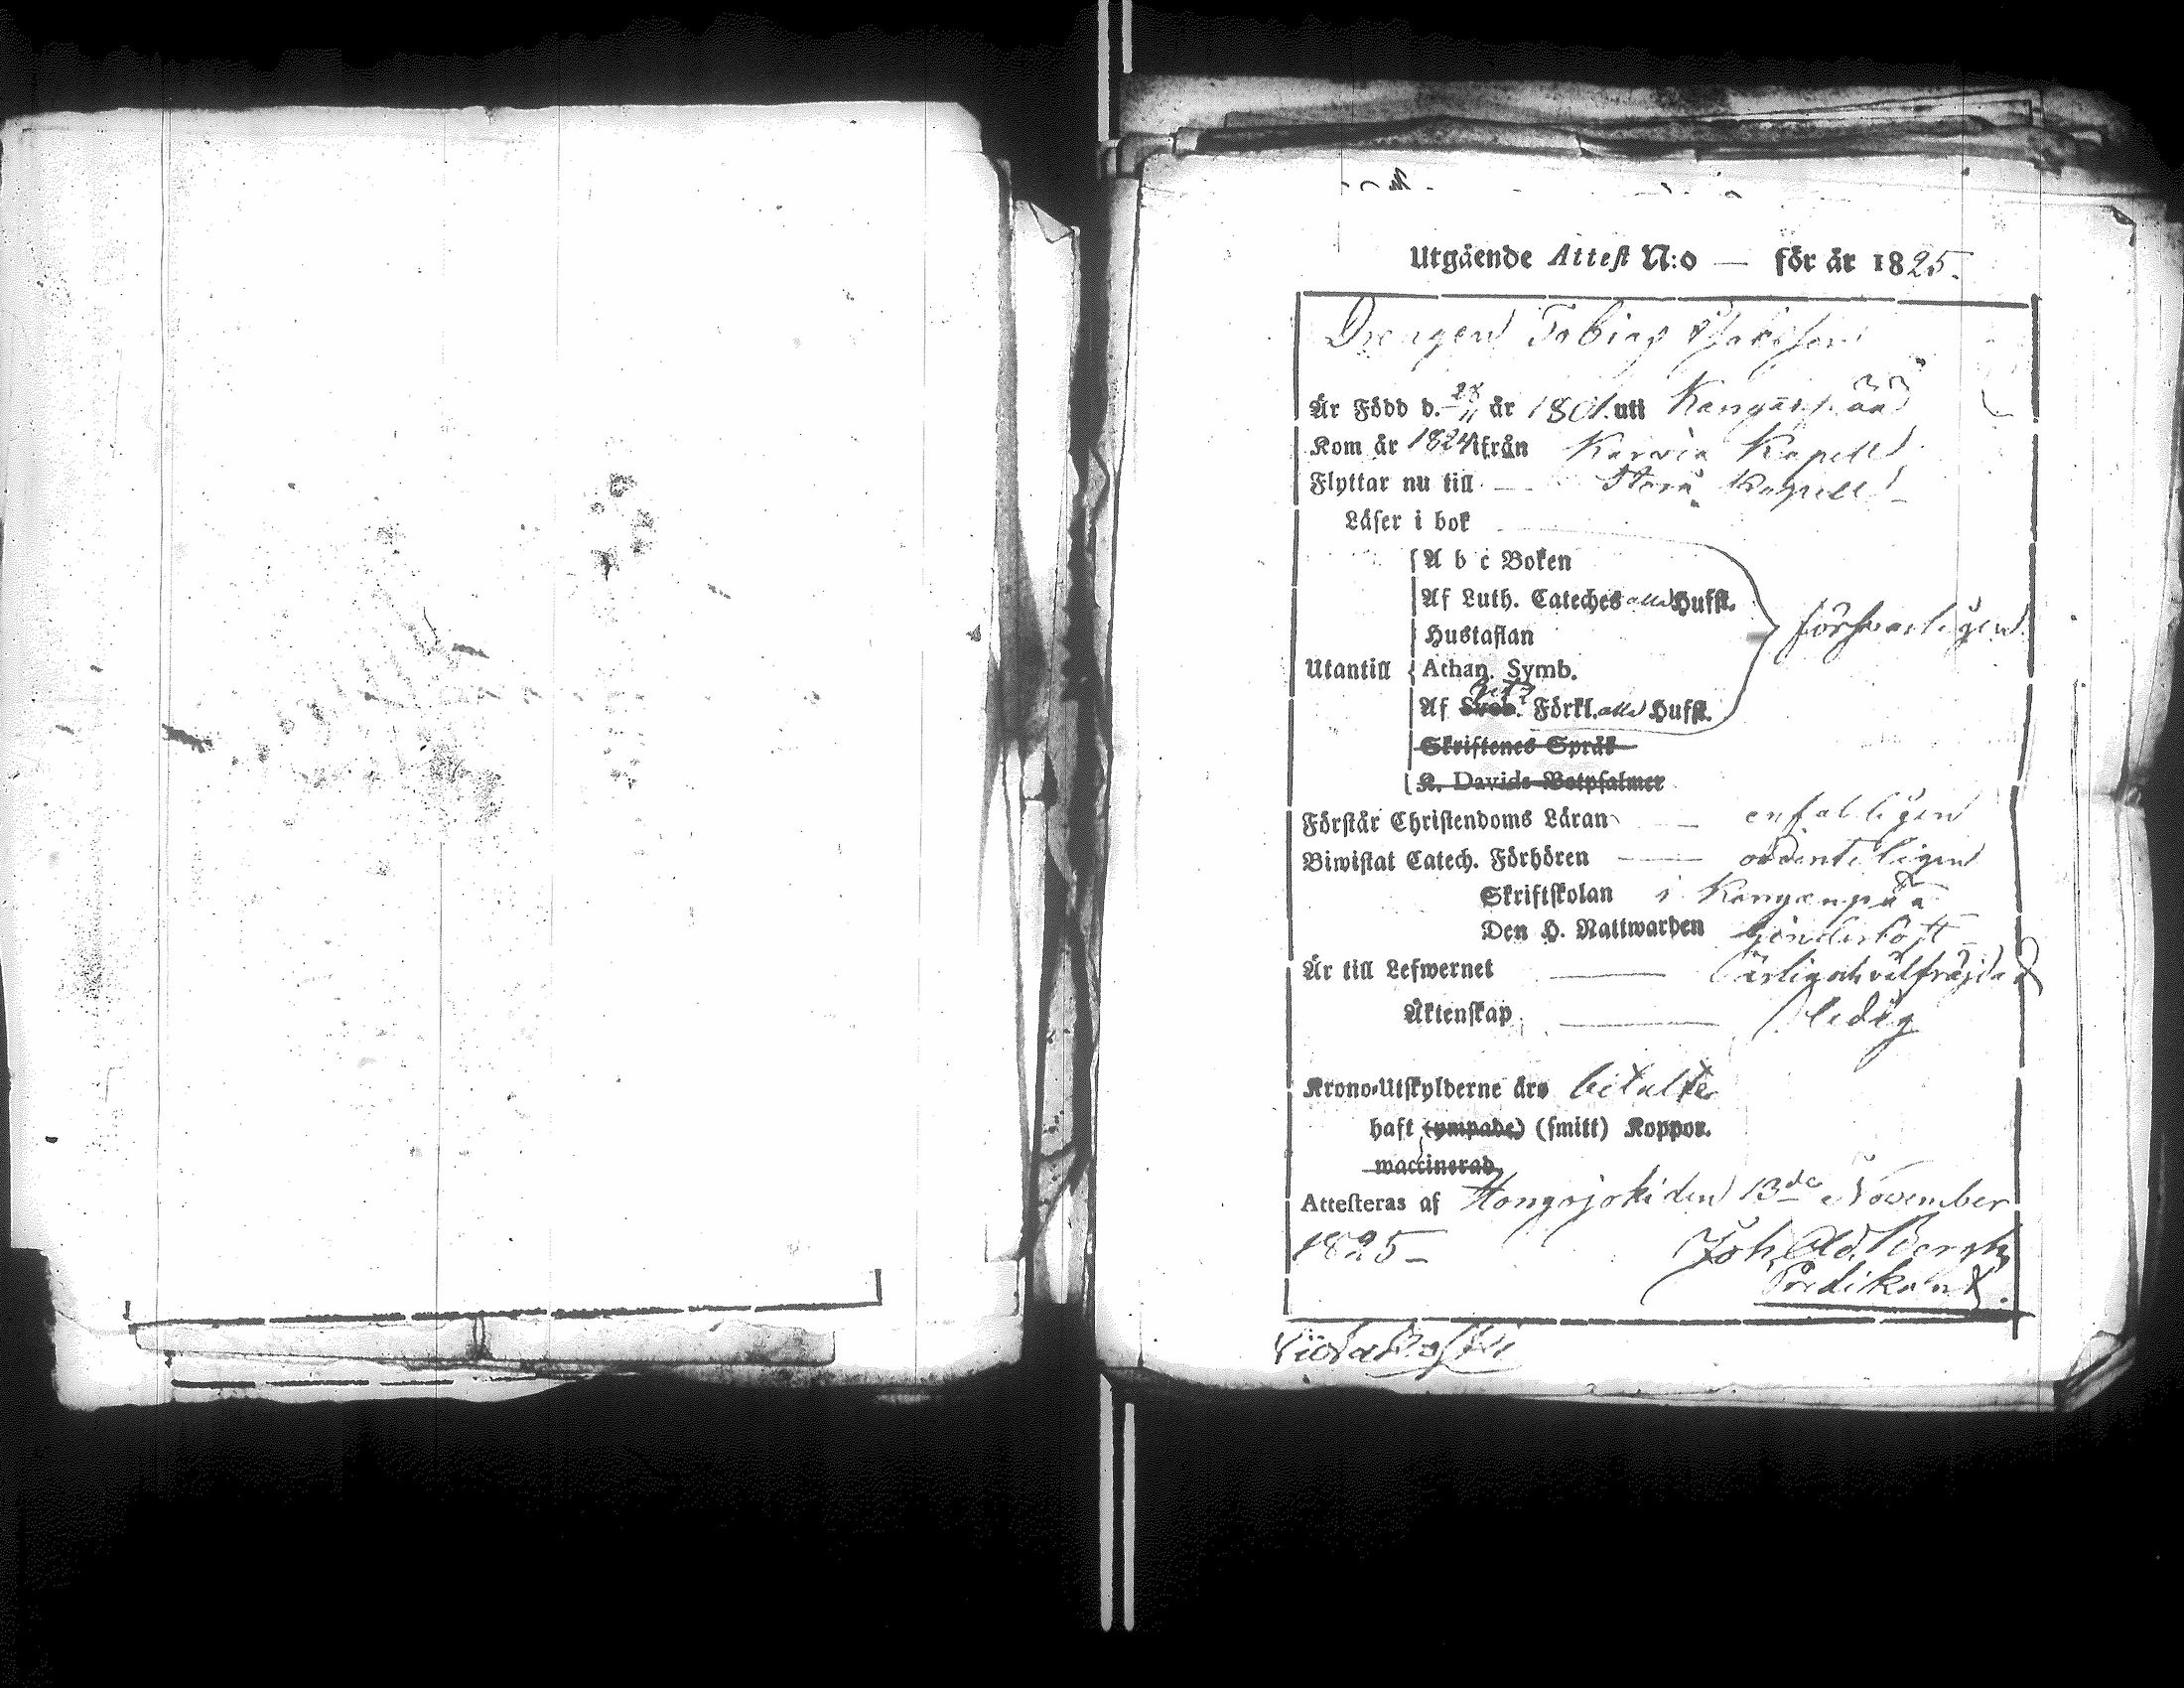 Utgående Attest N:o — för år 1825.
Drengen Tobias
Är Född d. 28/11 år 1801. uti Kanganpää
Kom år 1824 ifrån Karvia Kapell
Flyttar nu till — Storå Kapell
Läser i bok
A b c Boken
Af Luth. Cateches alla Hufst.
Hustaflan
försvarligen
Utantill Athan. Symb.
Af Sveb. Förkl. alla Hufst.
Skriftenes Språk
K. Davids Botpsalmer
Förstår Christendoms Läran — enfalligen
Biwistat Catech. Förhören — ordenteligen
Skriftskolan i Kangenpää
Den H. Nattwarden
Är till Lefwernet — ärlig och välfräjdad
Äktenskap — ledig
Krono-Utskylderne äro betalte
haft (ympade) (smitt) Koppor.
waccinerad,
Attesteras af Hongojoki den 13de November
1825 —
Joh. Ad. Bergh
Predikant.